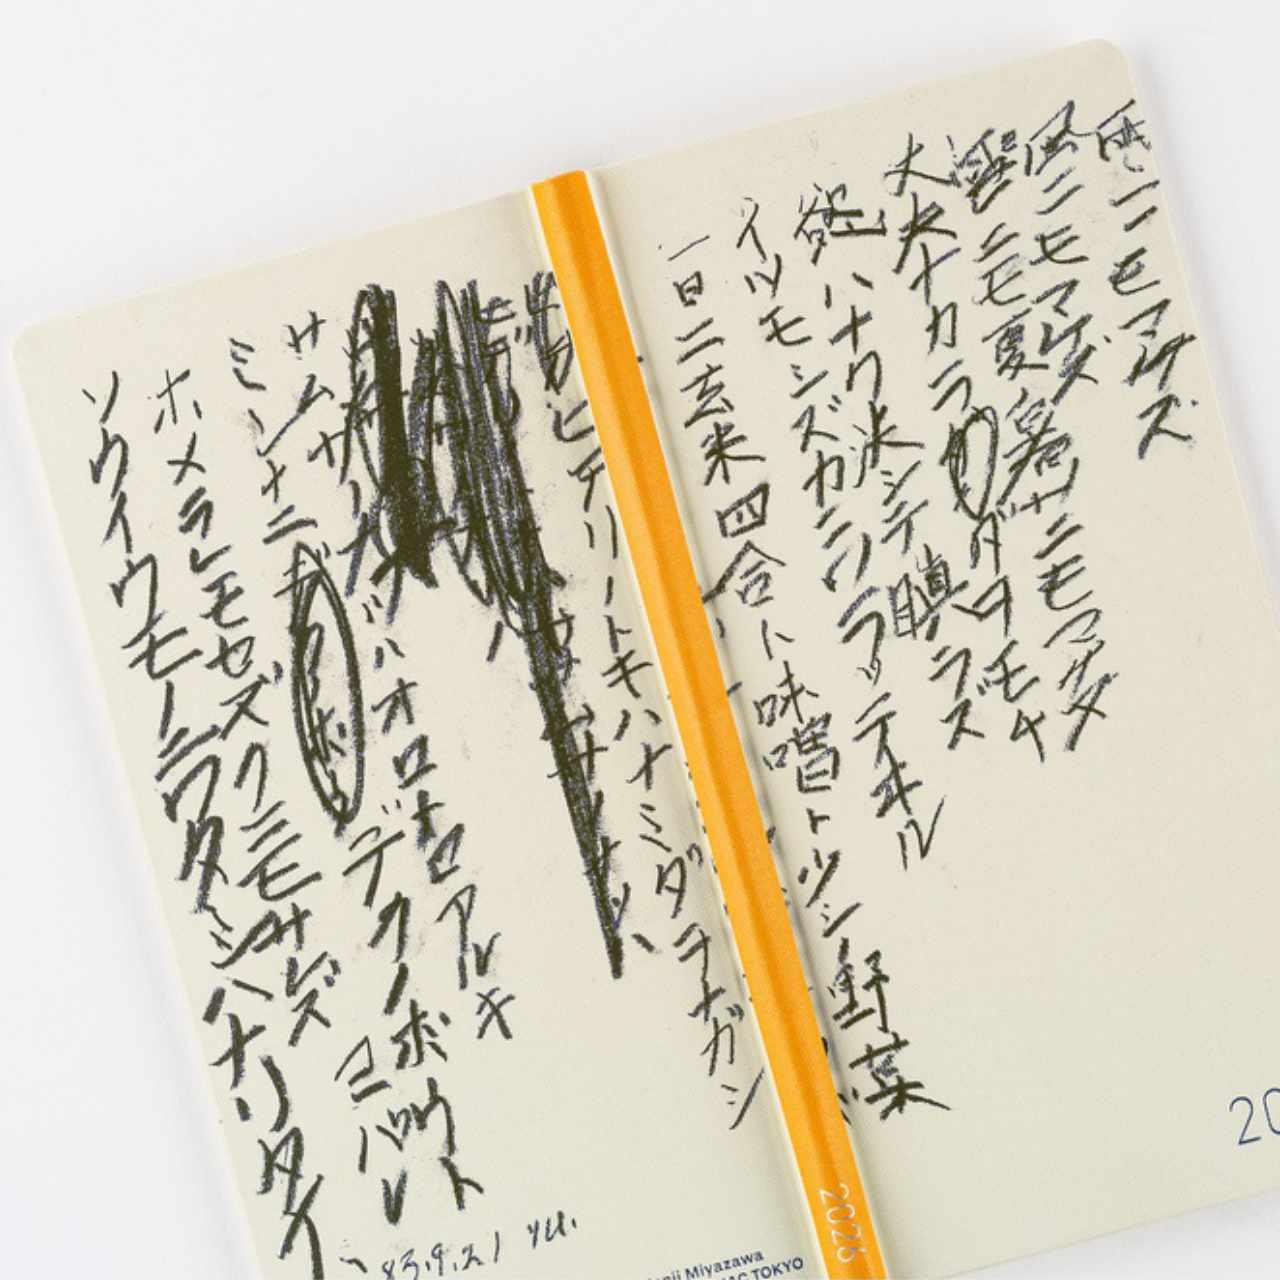 雨ニモマケズ
風ニモマケズ
雪ニモ夏ノ暑サニモマケヌ
丈夫ナカラダヲモチ
慾ハナク
決シテ瞋ラズ
イツモシズカニワラッテヰル
一日ニ玄米四合ト
味噌ト少シノ野菜
20
2026
ヒデリノトキハナミダヲナガシ
サムサノナツハオロオロアルキ
ミンナニ
デクノボウト
ヨバレ
ホメラレモセズ
クニモサレズ
ソウイウモノニ
ワタシハナリタイ
83.9.21 YU.
Miyazawa
TOKYO